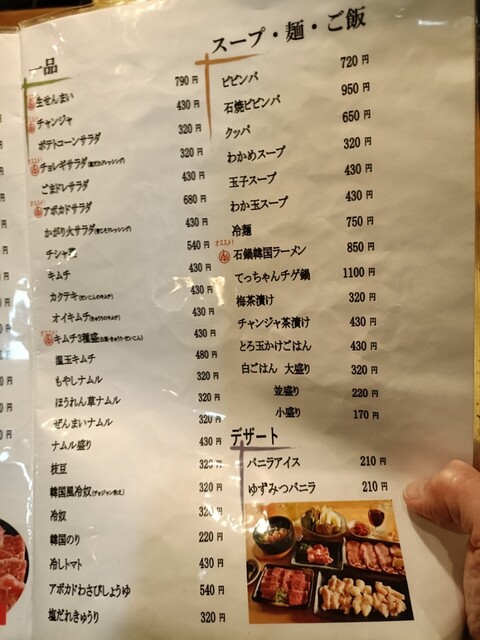 一品
オススメ! 生せんまい 790円
オススメ! チャンジャ 430円
ポテトコーンサラダ 320円
オススメ! チョレギサラダ 320円
ごまドレサラダ 430円
オススメ! アボカドサラダ 680円
かがり火サラダ 430円
チシャ菜 540円
キムチ 430円
カクテキ(だいこんのキムチ) 430円
オイキムチ(きゅうりのキムチ) 430円
オススメ! キムチ3種盛(白菜・きゅうり・だいこん) 430円
温玉キムチ 480円
もやしナムル 320円
ほうれん草ナムル 320円
ぜんまいナムル 320円
ナムル盛り 430円
枝豆 320円
韓国風冷奴(チョジャン和え) 320円
冷奴 320円
韓国のり 220円
冷しトマト 430円
アボカドわさびしょうゆ 540円
塩だれきゅうり 320円
スープ・麺・ご飯
ビビンバ 720円
石焼ビビンバ 950円
クッパ 650円
わかめスープ 320円
玉子スープ 430円
わか玉スープ 430円
冷麺 750円
オススメ! 石鍋韓国ラーメン 850円
てっちゃんチゲ鍋 1100円
梅茶漬け 320円
チャンジャ茶漬け 430円
とろ玉かけごはん 430円
白ごはん 大盛り 320円
並盛り 220円
小盛り 170円
デザート
バニラアイス 210円
ゆずみつバニラ 210円